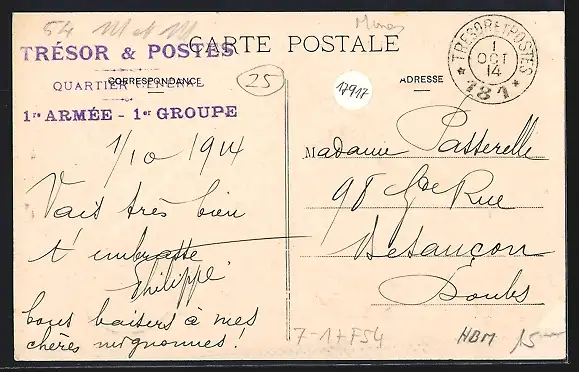 54 M et M
Mines
TRÉSOR & POSTES
CARTE POSTALE
QUARTIER GÉNÉRAL
CORRESPONDANCE
1re ARMÉE - 1er GROUPE
25
17917
ADRESSE
TRESOR ET POSTES
1
OCT
14
* 181 *
1/10 1914
Vais très bien
t'embrasse
Philippe
bons baisers à mes
chères mignonnes!
Madame Passerelle
98 Gde Rue
Besançon
Doubs
7-17F54
HBM
15